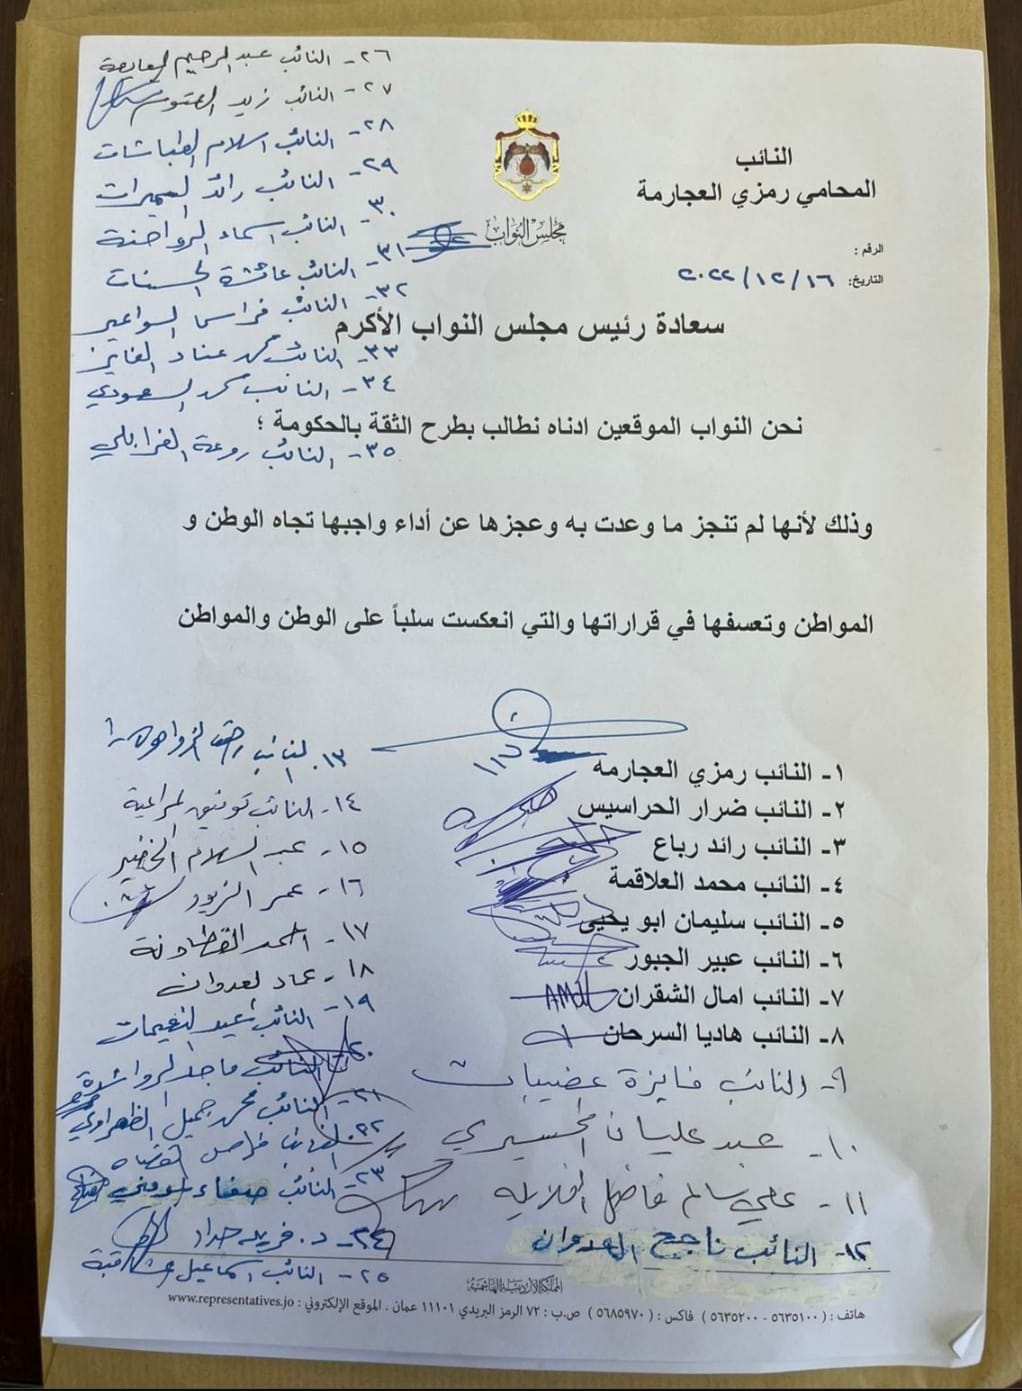 النائب
المحامي رمزي العجارمة
مجلس النواب
الرقم :
التاريخ: ٢٠٢٢/١٢/١٦
سعادة رئيس مجلس النواب الأكرم
نحن النواب الموقعين ادناه نطالب بطرح الثقة بالحكومة ؛
وذلك لأنها لم تنجز ما وعدت به وعجزها عن أداء واجبها تجاه الوطن و
المواطن وتعسفها في قراراتها والتي انعكست سلباً على الوطن والمواطن
١- النائب رمزي العجارمه
٢- النائب ضرار الحراسيس
٣- النائب رائد رباع
٤- النائب محمد العلاقمة
٥- النائب سليمان ابو يحيى
٦- النائب عبير الجبور
٧- النائب امال الشقران
٨- النائب هاديا السرحان
٩- النائب فايزة عضيبات
١٠- عبد عليان المحسيري
١١- علي سالم فاضل الغلاييه
١٢- النائب ناجح العدوان
١٣- النائب الزواهره
١٤- النائب توفيق المراعية
١٥- عبد السلام الخضير
١٦- عمر الزيود
١٧- احمد القطاونة
١٨- عماد العدوان
١٩- النائب عيد النعيمات
٢٠- النائب ماجد الرواشدة
٢١- النائب محمد جميل الظهراوي
٢٢- النائب فراس القضاه
٢٣- النائب صفاء المومني
٢٤- د. فريد حداد
٢٥- النائب اسماعيل المشاقبة
٢٦- النائب عبد الرحيم المعايعة
٢٧- النائب زيد العتوم
٢٨- النائب اسلام الطباشات
٢٩- النائب رائد السميرات
٣٠- النائب اسماء الرواحنة
٣١- النائب عائشة الحسنات
٣٢- النائب فراس السواعير
٣٣- النائب محمد عناد الفايز
٣٤- النائب محمد السعودي
٣٥- النائب روعة الغرابلي
المملكة الأردنية الهاشمية
هاتف : ( ٥٦٣٥١٠٠ - ٥٦٣٥٢٠٠ ) فاكس : ( ٥٦٨٥٩٧٠ ) ص.ب : ٧٢ الرمز البريدي ١١١٠١ عمان . الموقع الإلكتروني : www.representatives.jo